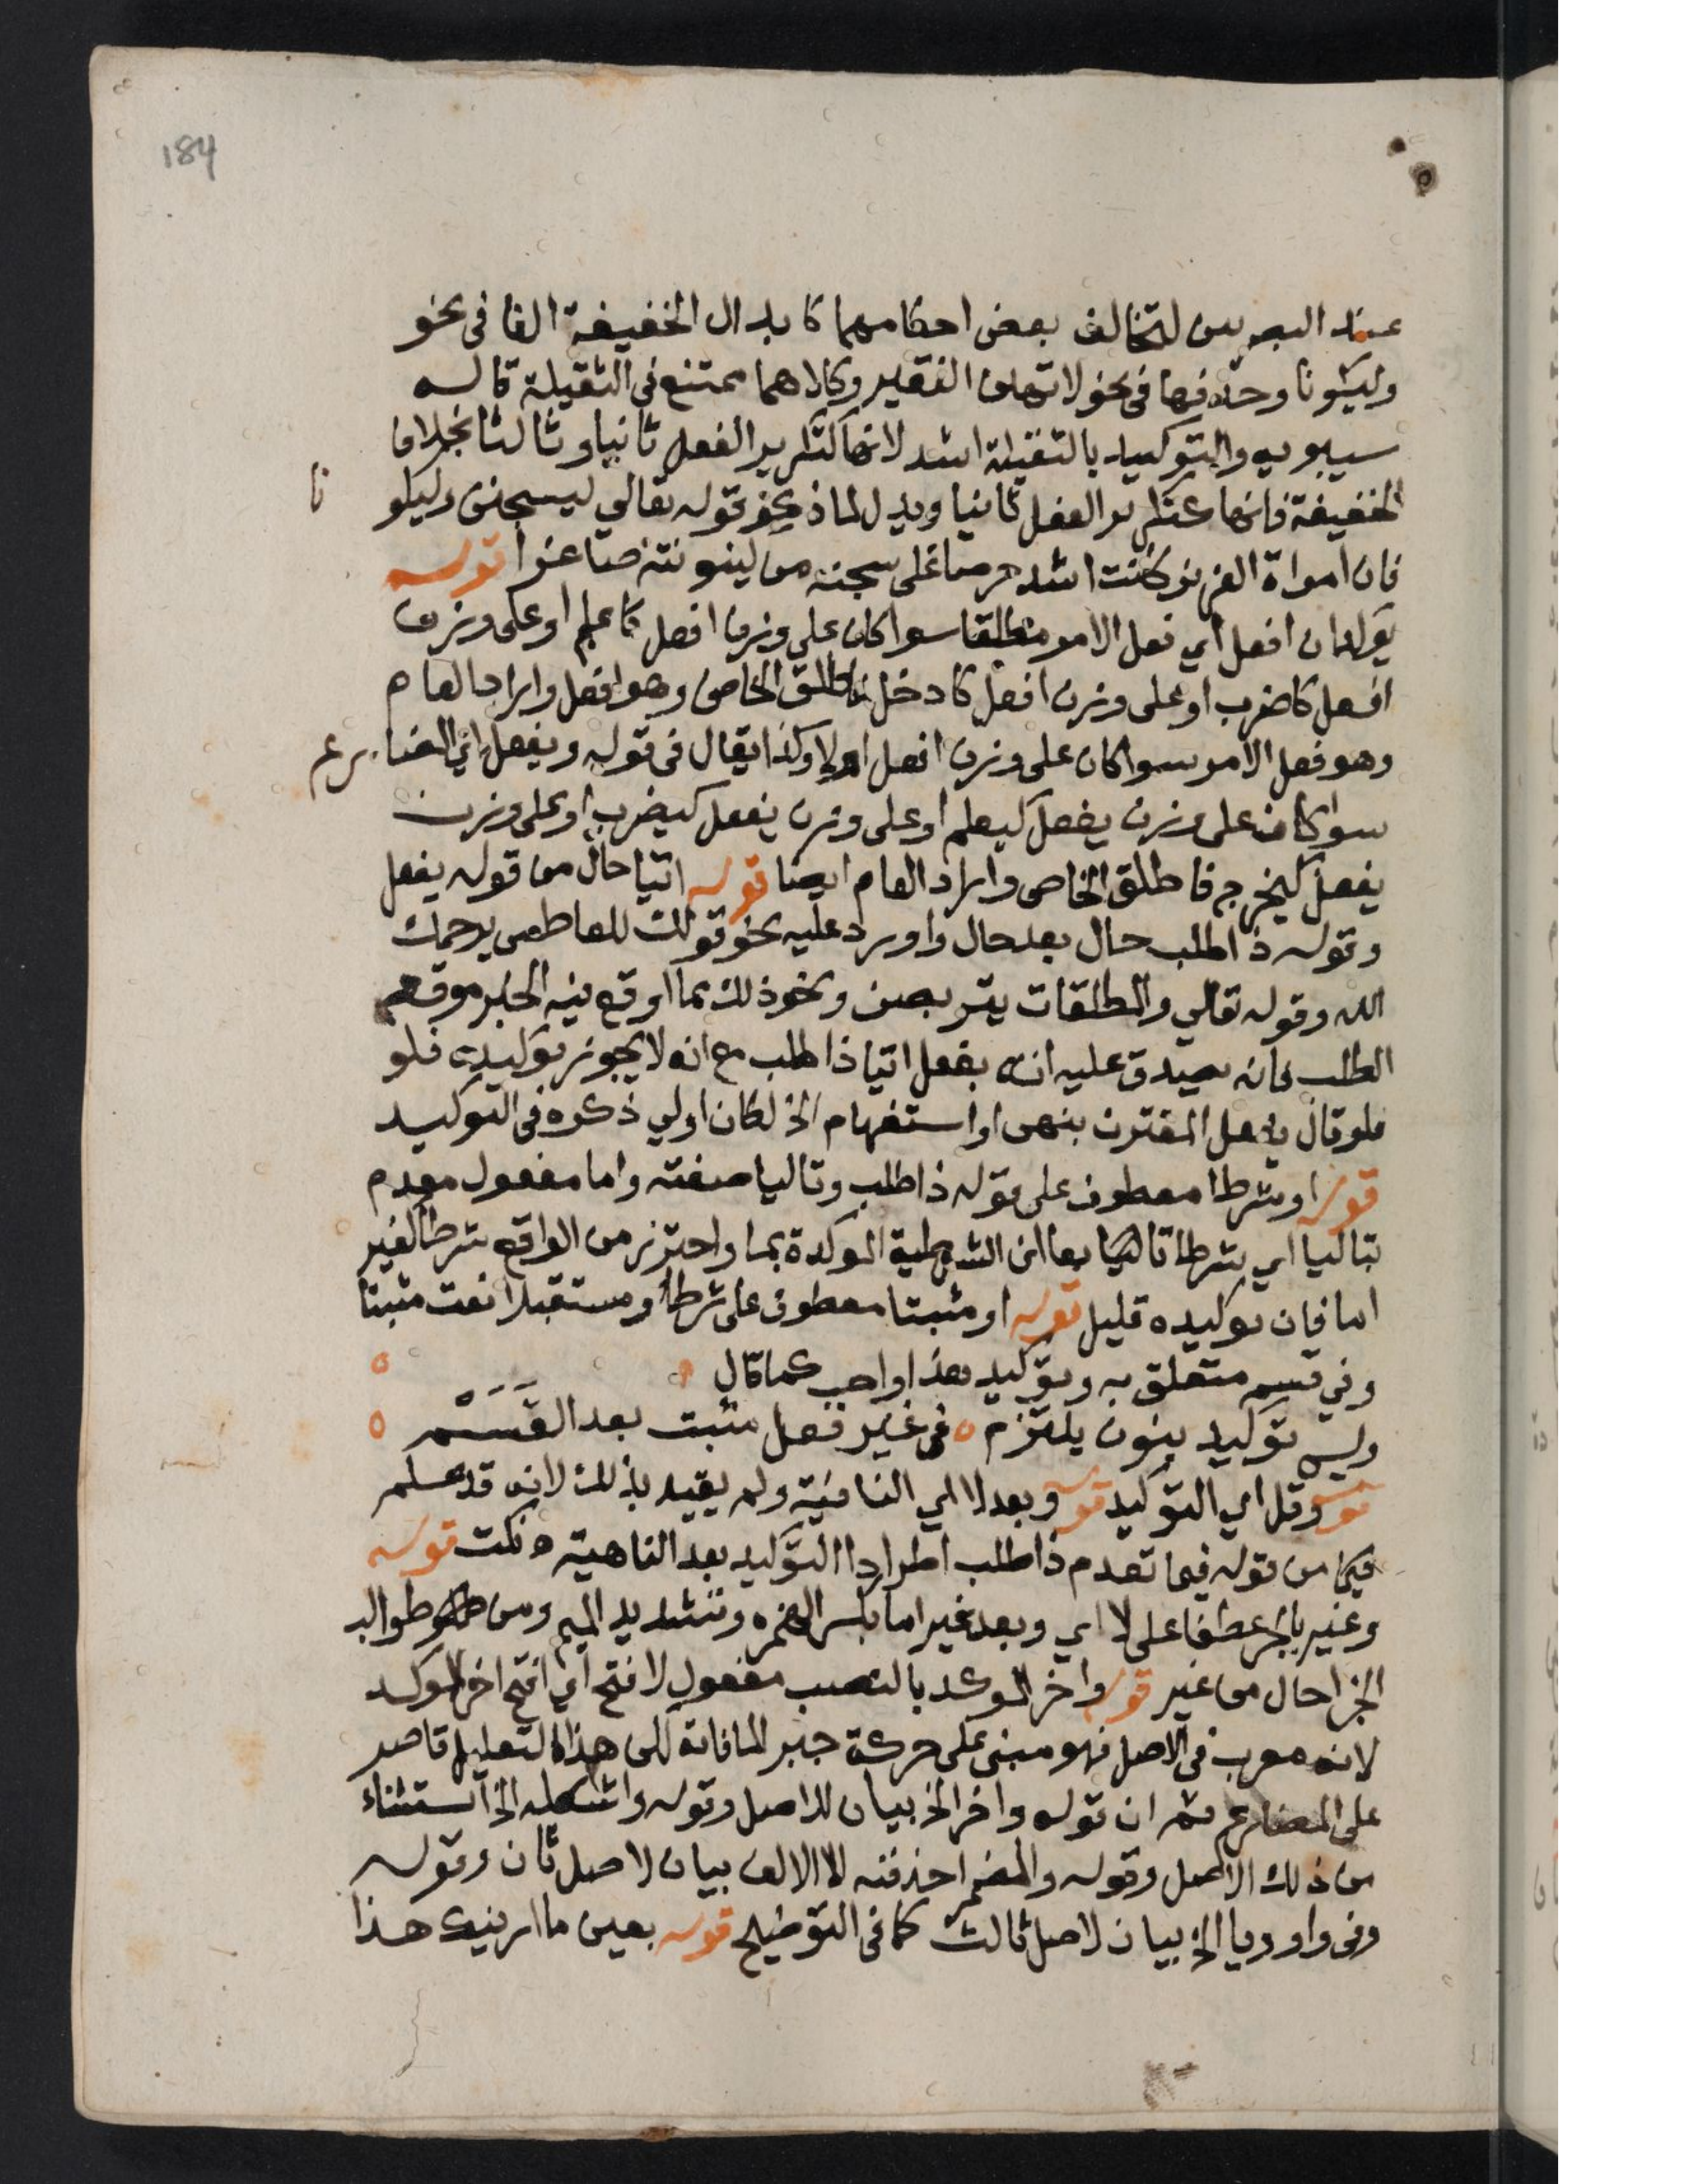 184
عند البصريين لتخالف بعض احكامهما كابدال الخفيفة الفا في نحو
وليكونا وحذفها في نحو لاتهين الفقير وكلاهما ممتنع في الثقيلة قاله
سيبويه والتوكيد بالثقيلة اشد لانها كتكرير الفعل ثانيا وثالثا بخلاف
الخفيفة فانها كتكرير الفعل ثانيا ويدل لما ذكر قوله تعالي ليسجنن وليكو نا
فان امراة العزيز كانت اشد حرصا على سجنه من كينونته صاغرا قوله
يؤكدان افعل اي فعل الامر مطلقا سوا كان علي وزن افعل كاعلم او على وزن
افعل كاضرب او على وزن افعل كادخل فاطلق الخاص وهو افعل واراد العام
وهو فعل الامر سوا كان على وزن افعل اولا وكذا يقال في قوله ويفعل اي المضارع
سوا كان على وزن يفعل كيعلم او على وزن يفعل كيضرب او على وزن
يفعل كيخرج فاطلق الخاص واراد العام ايضا قوله اتيا حال من قوله يفعل
وقوله ذا طلب حال بعد حال واورد عليه نحو قولك للعاطس يرحمك
الله وقوله تعالي والمطلقات يتربصن ونحو ذلك مما اوقع فيه الخبر موقع
الطلب فانه يصدق عليه انه يفعل اتيا ذا طلب مع انه لا يجوز توكيده فلو
فلو قال يفعل المقترن بنهي او استفهام الخ لكان اولي ذكره في التوكيد
قوله او شرطا معطوف على قوله ذا طلب وتاليا صفته واما مفعول مقدم
بتاليا اي شرطا تاليا اما اي الشرطية الموكدة بما واحترز من الواقع شرطا لغير
اما فان توكيده قليل قوله او مثبتا معطوف على شرطا ومستقبلا نعت مثبتا
وفي قسم متعلق به وتوكيد هذا واجب كما قال
وليس توكيد بنون يلتزم في غير فعل مثبت بعد القَسَمْ
قوله وقل اي التوكيد قوله وبعد لا اي النافية ولم يقيد بذلك لانه قد علم
من قوله فيما تقدم ذا طلب اطراد التوكيد بعد الناهية نكت قوله
وغير بالجر عطفا على لا اي وبعد غير اما بكسر الهمزه وتشديد الميم ومن طوالب
الجزا حال من غير قوله واخر الموكد بالنصب مفعول لافتح اي افتح اخر الموكد
لانه معرب في الاصل فهو مبني على حركة جبر لما فاته لكن هذا التعليل قاصر
على المضارع ثم ان قوله واخر الخ بيان للاصل وقوله واشكله الخ استثناء
من ذلك الاصل وقوله والمضمر احذفنه الا الالف بيان لاصل ثان وقوله
وفي واو ويا الخ بيان لاصل ثالث كما في التوضيح قوله بعين ما ارينك هذا